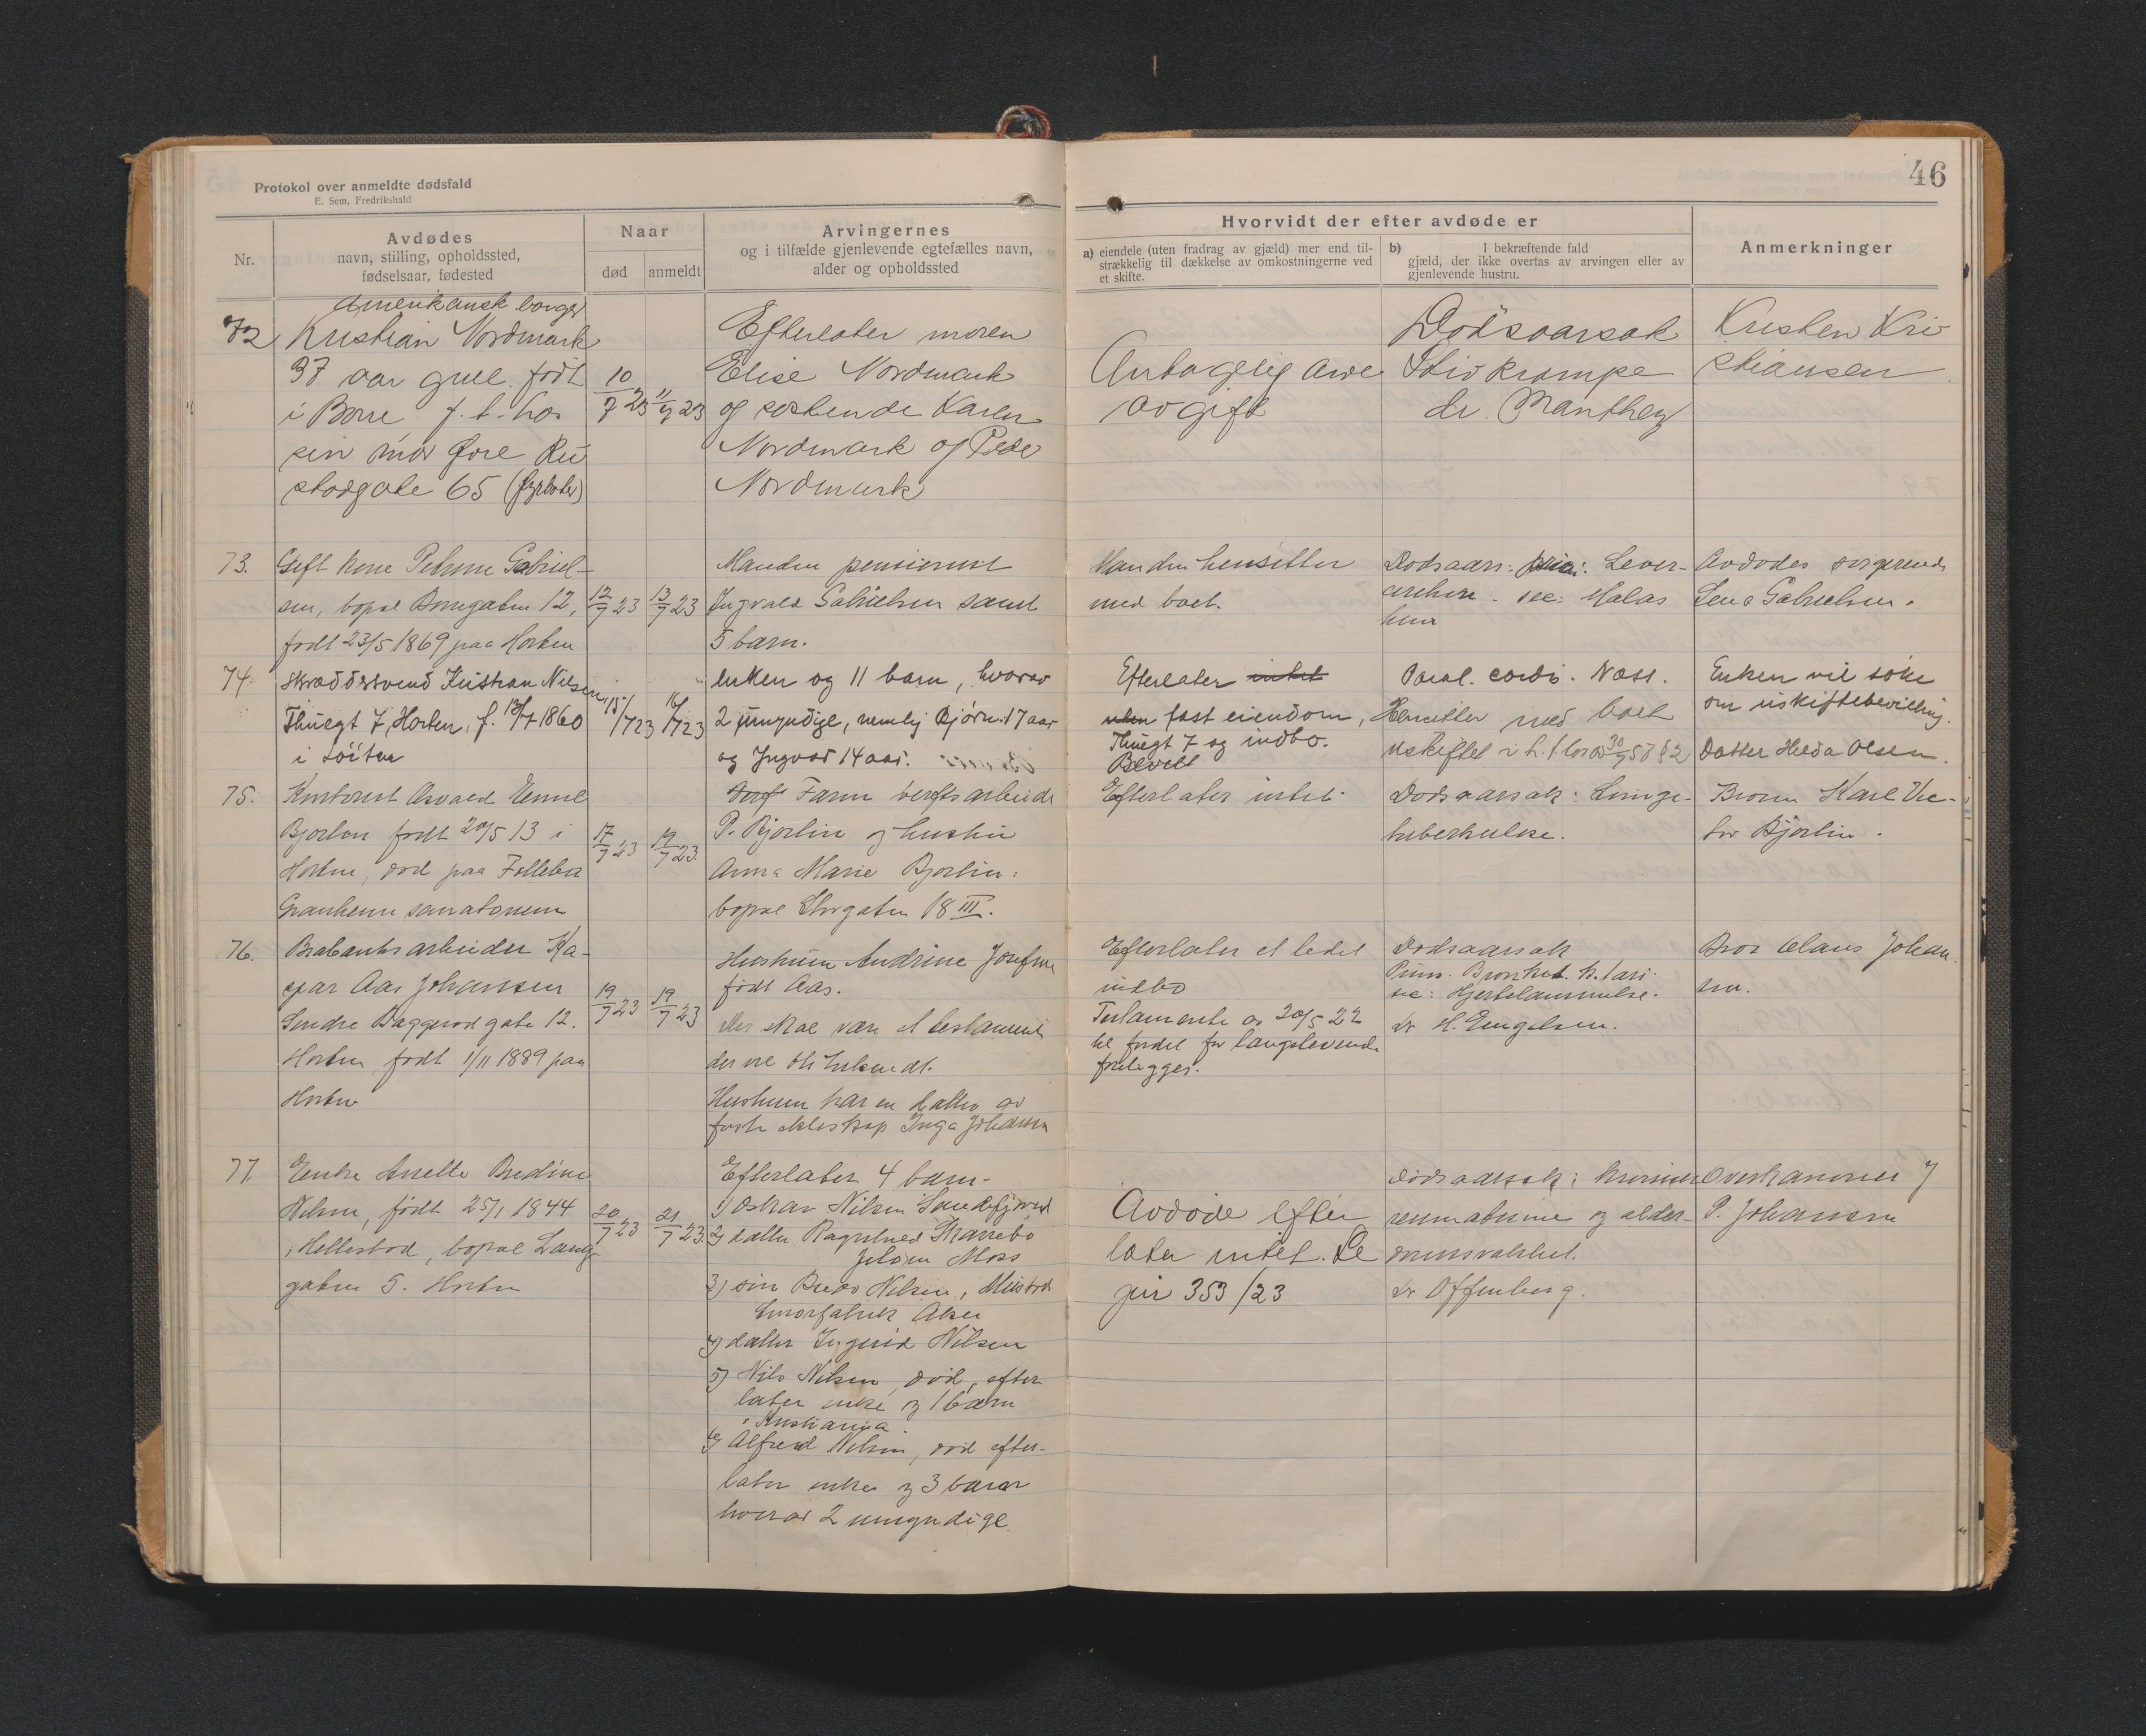 46
Protokol over anmeldte dødsfald
E. Sem, Fredrikshald
Nr.
Avdødes
navn, stilling, opholdssted,
fødselsaar, fødested
Naar
død
anmeldt
Arvingernes
og i tilfælde gjenlevende egtefælles navn,
alder og opholdssted
Hvorvidt der efter avdøde er
a) eiendele (uten fradrag av gjæld) mer end til-
strækkelig til dækkelse av omkostningerne ved
et skifte.
b) I bekræftende fald
gjæld, der ikke overtas av arvingen eller av
gjenlevende hustru.
Anmerkninger
72
Amerikansk borger
Kristian Nordmark
37 aar gml. født
i Borre f. t. hos
sin mor Øvre Ru
stadgate 65 (fyrbøter)
10/7 23
11/7 23
Efterlater moren
Elise Nordmark
og søskende Karen
Nordmark og Peder
Nordmark
Antagelig arve
avgift
Dødsaarsak
Stivkrampe
dr. Manthey
Kristen Kri
stiansen
73.
Gift kone Petrine Gabriel-
sen, bopæl Borregaten 12,
født 23/5 1869 paa Horten
12/7 23
13/7 23
Manden pensionist
Ingvald Gabrielsen samt
5 barn.
Manden hensitter
med boet.
Dødsaars: prim: Lever-
cirrhose. sec: Malas
Avdødes svigerinde
Lena Gabrielsen.
74.
Skræddersvend Kristian Nilsen
Thuegt 7, Horten, f. 13/7 1860
i Løiten
15/7 23
16/7 23
Enken og 11 barn, hvorav
2 umyndige, nemlig Bjørn 17 aar
og Ingvar 14 aar.
Efterlater intet
uten fast eiendom,
Thuegt 7 og indbo.
Bevilt
Paral. cordis. Næss.
Hensitter med boet
uskiftet i h. t. lov av 30/7 58 § 2
Enken vil søke
om uskiftebevilling.
Datter Hilda Olsen.
75.
Kontorist Osvald Emil
Bjorlin født 20/5 13 i
Horten, død paa Follebu
Granheim sanatorium
17/7 23
19/7 23.
Farm verftsarbeider
P. Bjorlin og hustru
Anna Marie Bjorlin:
bopæl Storgaten 18 III.
Efterlater intet
Dødsaarsak: Lunge-
tuberkulose.
Broren Karl Vic-
tor Bjørlin.
76.
arbeider Ka-
spar Aas Johansen
Søndre Baggerødgate 12.
Horten født 1/11 1889 paa
Horten
19/7 23
19/7 23
Hustruen Andrine Josefine
født Aas.
Der skal være et testamente
der vil bli indsendt.
Hustruen har en datter av
første ekteskap Inga Johansen
Efterlater et litet
indbo
Testamente av 20/5 22
til fordel for længstlevende
fremlegges.
Dødsaarsak
Prim. Bronchit.
sec: Hjertelammelse.
dr H. Engelsen.
Bror Claus Johan
sen.
77.
Enke Anette Bredine
Nilsen, født 25/1 1844
i Hellestød, bopæl Lang-
gaten 5. Horten
20/7 23
21/7 23.
Efterlater 4 barn.
1) Oskar Nilsen Sandefjord
2) datter Ragnhild Skarrebo
Jeløen Moss
3) søn Bredo Nilsen, Mustad
Smørfabrik Aker
4) datter Ingerid Nilsen
5) Nils Nilsen, død, efter
later enke og 1 barn
i Kristiania
6) Alfred Nilsen, død efter-
later enke og 3 barn
hvorav 2 umyndige.
Avdøde efter
later intet. Le
gir 353/23
Dødsaarsak: kronisk
reumatisme og alder-
domssvakhet.
dr Offenberg.
Overkanoner J
P. Johansen